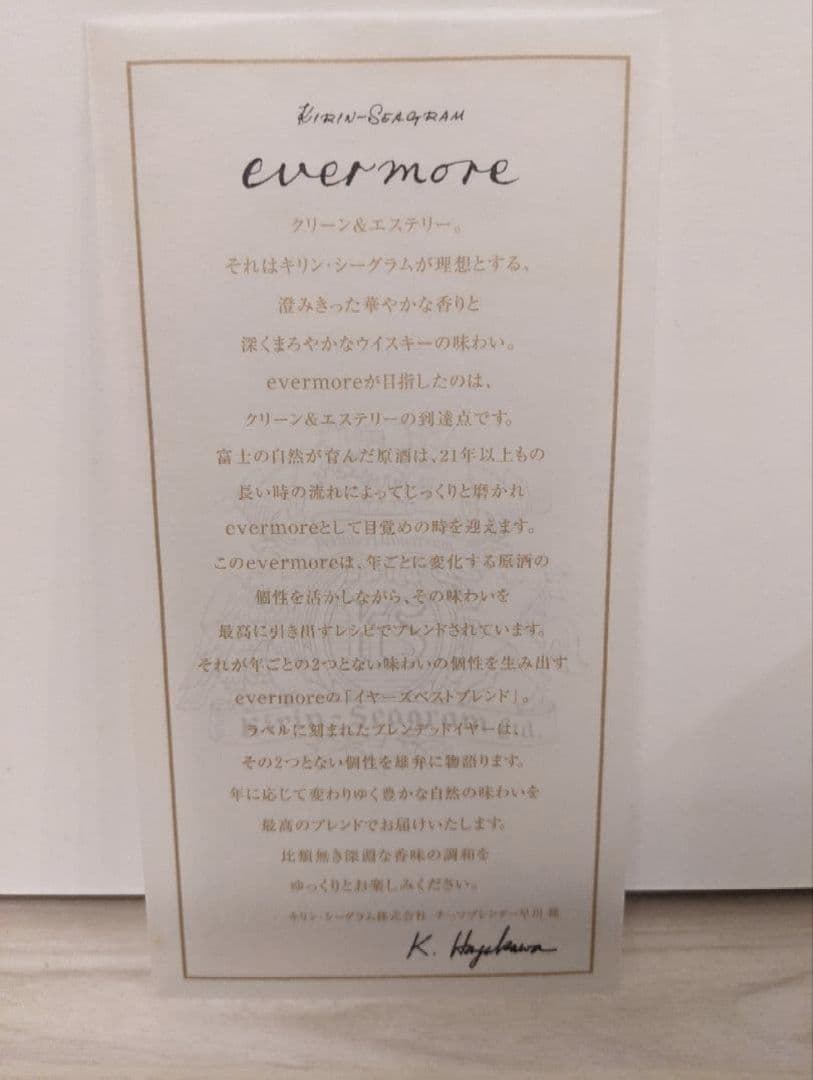 KIRIN-SEAGRAM
evermore
クリーン&エステリー。
それはキリン・シーグラムが理想とする、
澄みきった華やかな香りと
深くまろやかなウイスキーの味わい。
evermoreが目指したのは、
クリーン&エステリーの到達点です。
富士の自然が育んだ原酒は、21年以上もの
長い時の流れによってじっくりと磨かれ
evermoreとして目覚めの時を迎えます。
このevermoreは、年ごとに変化する原酒の
個性を活かしながら、その味わいを
最高に引き出すレシピでブレンドされています。
それが年ごとの2つとない味わいの個性を生み出す
evermoreの「イヤーズベストブレンド」。
ラベルに刻まれたブレンデッドイヤーは、
その2つとない個性を雄弁に物語ります。
年に応じて変わりゆく豊かな自然の味わいを
最高のブレンドでお届けいたします。
比類無き深淵な香味の調和を
ゆっくりとお楽しみください。
キリン・シーグラム株式会社 チーフブレンダー早川
K. Hayakawa
Kirin-Seagram Ltd.